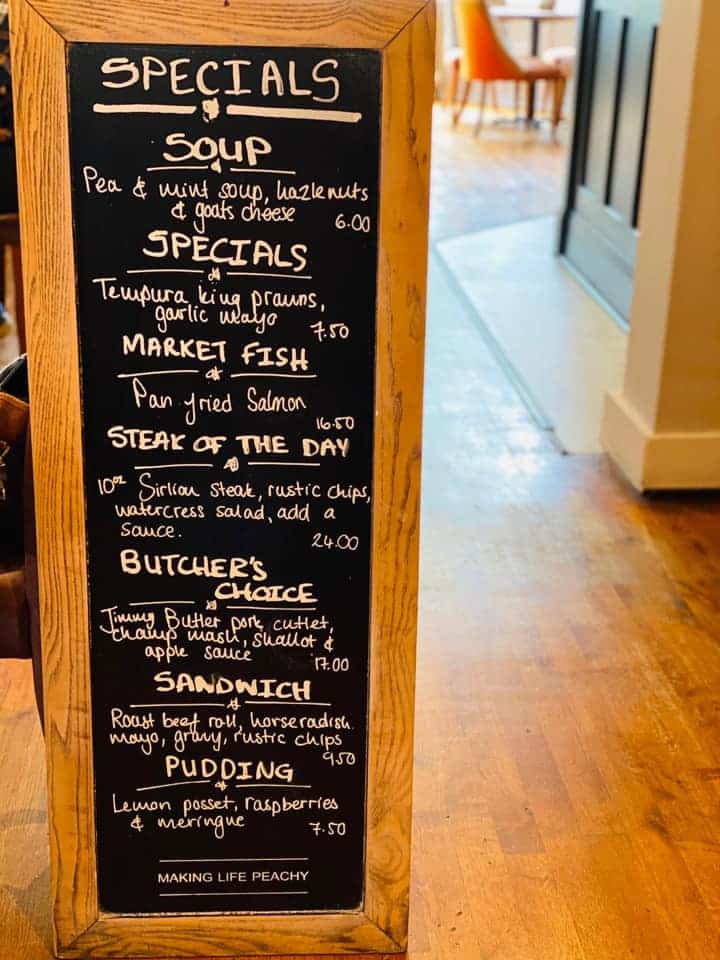 SPECIALS
SOUP
Pea & mint soup, hazlenuts
& goats cheese 6.00
SPECIALS
Tempura king prawns,
garlic mayo 7.50
MARKET FISH
Pan fried Salmon
16.50
STEAK OF THE DAY
10oz Sirlion Steak, rustic chips,
watercress salad, add a
sauce.
24.00
BUTCHER'S
CHOICE
Jimmy Butler pork cutlet,
champ mash, shallot &
apple sauce
17.00
SANDWICH
Roast beef roll, horseradish
mayo, gravy, rustic chips
9.50
PUDDING
Lemon posset, raspberries
& meringue 7.50
MAKING LIFE PEACHY